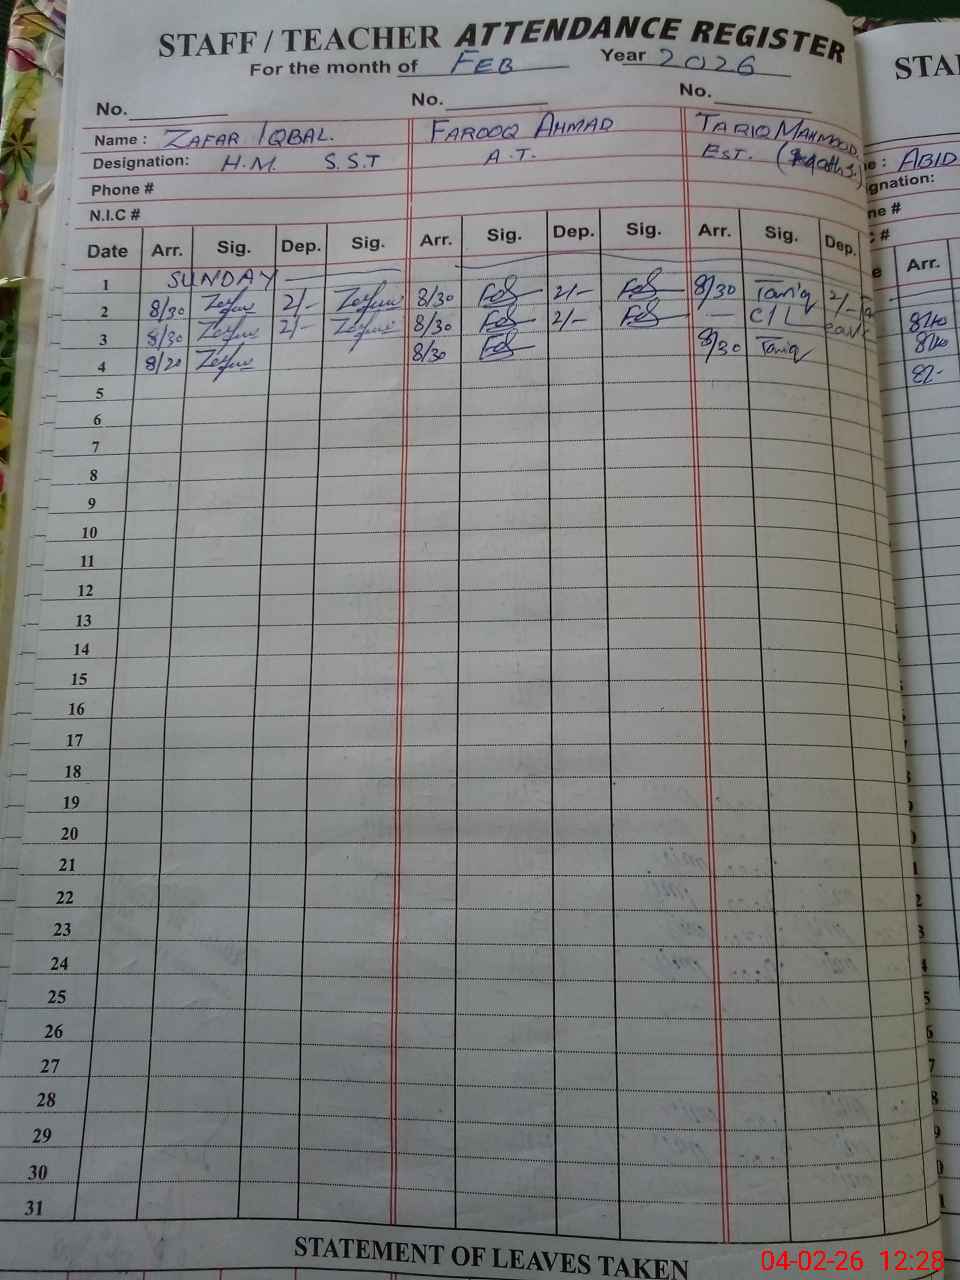 STAFF / TEACHER ATTENDANCE REGISTER
For the month of FEB Year 2026
No. No. No.
Name : ZAFAR IQBAL. FAROOQ AHMAD TARIQ MAHMOOD.
Designation: H.M. S.S.T A.T. EST.
Phone #
N.I.C #
Date Arr. Sig. Dep. Sig. Arr. Sig. Dep. Sig. Arr. Sig. Dep.
1 SUNDAY
2 8/30 Zafar 2/- Zafar 8/30 2/- 8/30 Tariq 2/-
3 8/30 Zafar 2/- Zafar 8/30 2/- — C/L
4 8/20 Zafar 8/30 8/30 Tariq
5
6
7
8
9
10
11
12
13
14
15
16
17
18
19
20
21
22
23
24
25
26
27
28
29
30
31
STATEMENT OF LEAVES TAKEN
STA
: ABID
gnation:
ne #
#
Arr.
8/40
8/40
04-02-26 12:28